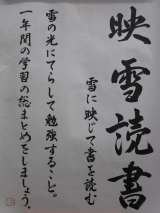 映雪読書
雪に映じて書を読む
雪の光にてらして勉強すること。
一年間の学習の総まとめをしましょう。